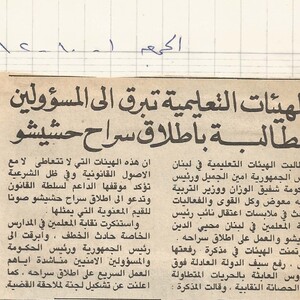 الجمعة ١ - ١٠ - ١٢
لهيئات التعليمية تبرق الى المسؤولين
طالبة باطلاق سراح حشيشو
طالبت الهيئات التعليمية في لبنان
س الجمهورية امين الجميل ورئيس
كومة شفيق الوزان ووزير التربية
ه معوض وكل القوى والفعاليات
في ملابسات اعتقال نائب رئيس
المعلمين في لبنان محيي الدين
شو والعمل على اطلاق سراحه.
تمنت الهيئات في مذكرة رفعتها
سيف الدولة العادلة فوق
وس العابثة بالحريات المتطاولة
الحصانة النقابية. وقالت المذكرة
ان هذه الهيئات التي لا تتعاطى الا مع
الاصول القانونية وفي ظل الشرعية
تؤكد موقفها الداعم لسلطة القانون
وتدعو الى اطلاق سراح حشيشو صونا
للقيم المعنوية التي يمثلها.
واستنكرت نقابة المعلمين في المدارس
الخاصة حادث الخطف. وأبرقت الى
رئيس الجمهورية ورئيس الحكومة
والمسؤولين الامنيين مناشدة اياهم
العمل السريع على اطلاق سراحه. كما
اعلنت عن تشكيل لجنة لملاحقة القضية